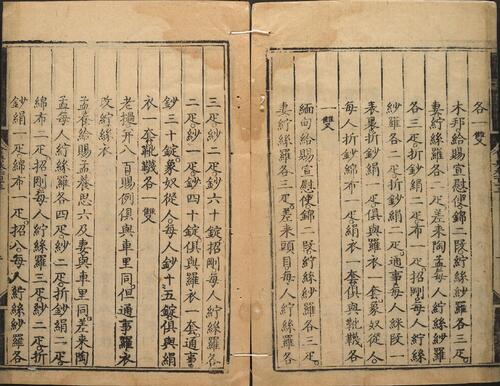 各一雙
木邦給賜宣慰使錦二段紵絲紗羅各三疋
妻紵絲羅各二疋差來陶孟每人紵絲紗羅
各三疋折鈔絹二疋布一疋招剛每人紵絲
紗羅各二疋折鈔絹二疋通事每人綵段一
表裏折鈔絹一疋俱與羅衣一套象奴從人
每人折鈔綿布一疋絹衣一套俱與靴韈各
一雙
緬甸給賜宣慰使錦二段紵絲紗羅各三疋
妻紵絲羅各三疋差來頭目每人紵絲紗羅各
三疋紗一疋鈔六十錠招剛每人紵絲羅各
二疋紗一疋鈔四十錠俱與羅衣一套通事
鈔三十錠象奴從人每人鈔十五錠俱與絹
衣一套靴韈各一雙
老撾開八百賜例俱與車里同但通事羅衣
改紵絲衣
孟養給賜孟養思六及妻與車里同差來陶
孟每人紵絲羅各四疋紗二疋折鈔絹二疋
綿布二疋招剛每人紵絲羅三疋紗二疋折
鈔絹一疋綿布一疋招公每人紵絲紗羅各